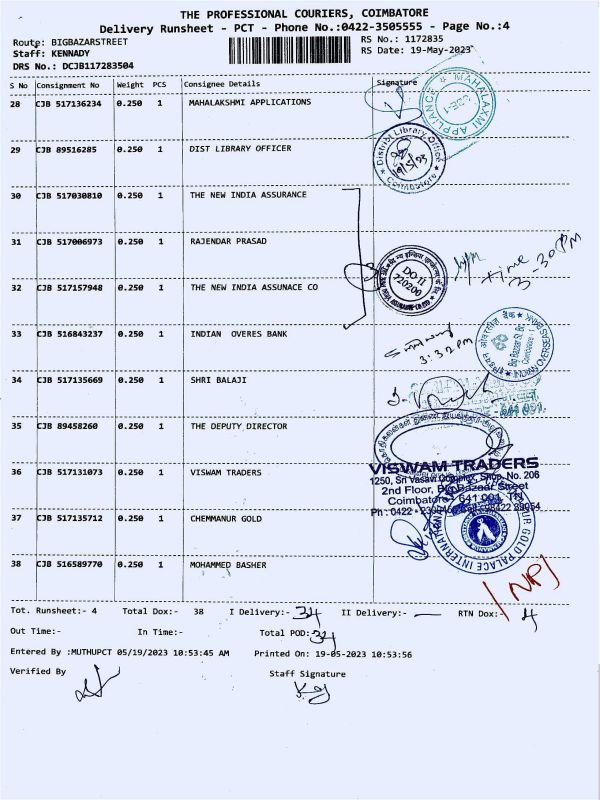 THE PROFESSIONAL COURIERS, COIMBATORE
Delivery Runsheet - PCT - Phone No.:0422-3505555 - Page No.:4
Route: BIGBAZARSTREET RS No.: 1172835
Staff: KENNADY RS Date: 19-May-2023
DRS No.: DCJB117283504
S No Consignment No Weight PCS Consignee Details Signature
28 CJB 517136234 0.250 1 MAHALAKSHMI APPLICATIONS
MAHALAXMI APPLIANCE
29 CJB 89516285 0.250 1 DIST LIBRARY OFFICER
District Library Office
19/5/23
Coimbatore
30 CJB 517030810 0.250 1 THE NEW INDIA ASSURANCE
31 CJB 517006973 0.250 1 RAJENDAR PRASAD
Time 3-30 PM
DO-II
720200
32 CJB 517157948 0.250 1 THE NEW INDIA ASSUNACE CO
33 CJB 516843237 0.250 1 INDIAN OVERES BANK
3:32 PM
INDIAN OVERSEAS BANK
Big Bazaar St. Br.
Coimbatore
34 CJB 517135669 0.250 1 SHRI BALAJI
35 CJB 89458260 0.250 1 THE DEPUTY DIRECTOR
36 CJB 517131073 0.250 1 VISWAM TRADERS
VISWAM TRADERS
1250, Sri Vasavi Complex, Shop. No. 206
2nd Floor, Big Bazaar Street
Coimbatore - 641 001. TN
37 CJB 517135712 0.250 1 CHEMMANUR GOLD
GOLD PALACE INTERNATIONAL
38 CJB 516589770 0.250 1 MOHAMMED BASHER
NP
Tot. Runsheet:- 4 Total Dox:- 38 I Delivery:- 34 II Delivery:- — RTN Dox:- 4
Out Time:- In Time:- Total POD: 34
Entered By :MUTHUPCT 05/19/2023 10:53:45 AM Printed On: 19-05-2023 10:53:56
Verified By Staff Signature